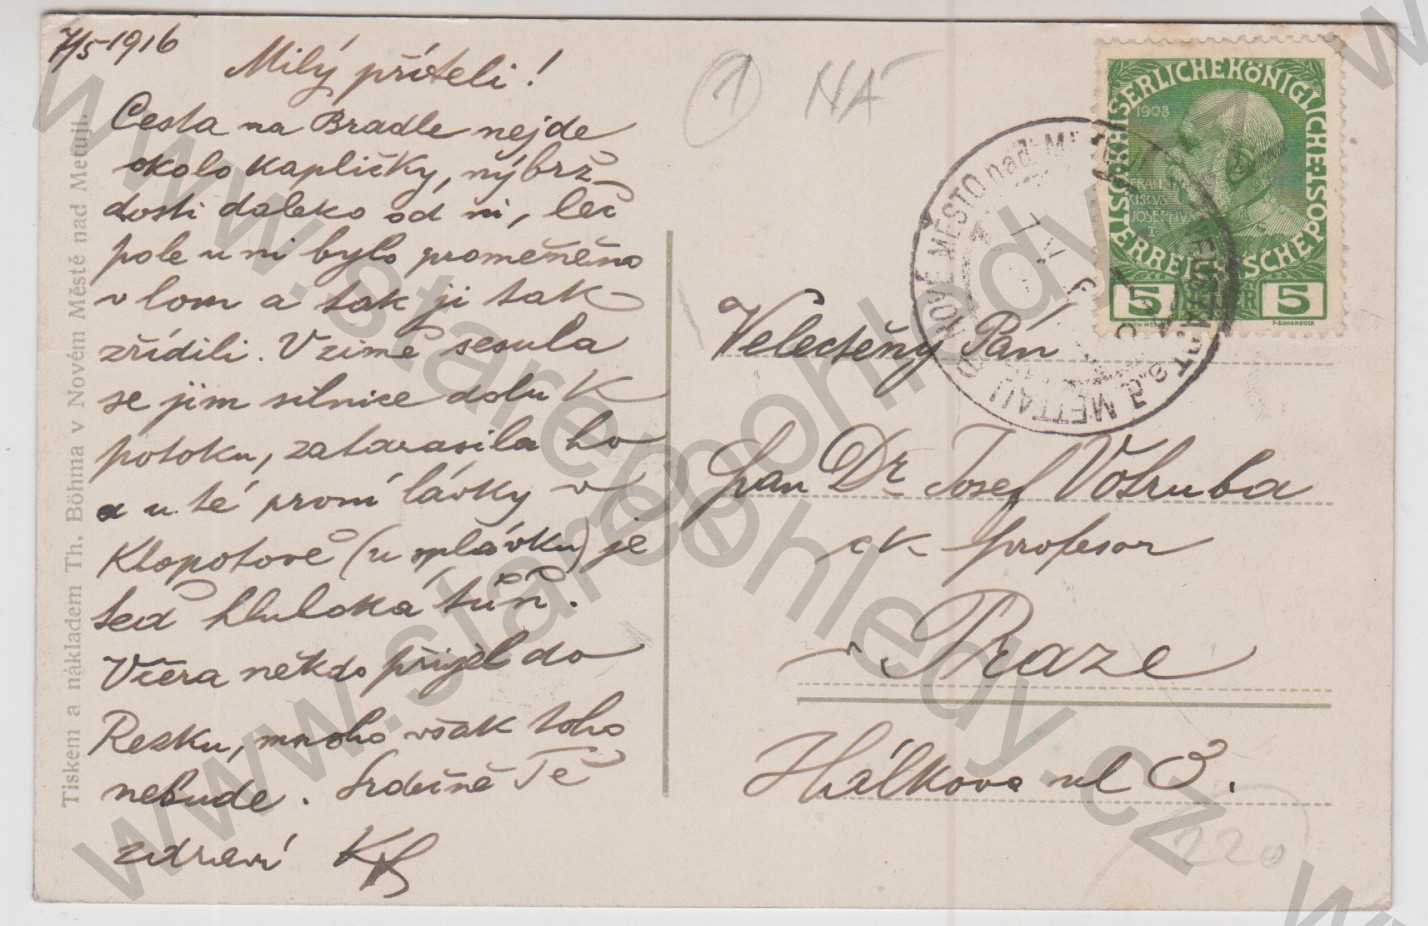 7/5 1916
Milý příteli!
Cesta na Bradle nejde
okolo kapličky, nýbrž
dosti daleko od ní, leč
pole u ní bylo proměněno
v lom a tak ji tak
zřídili. V zimě sesula
se jím silnice dolu k
potoku, zatarasila ho
a u té první lávky v
Klopotově (u splávku) je
teď hluboká tůň.
Včera někdo přijel do
Rezku, mnoho však toho
nebude. Srdečně Tě
zdraví
Tiskem a nákladem Th. Böhma v Novém Městě nad Metují.
1 NA
KAISERLICHE KÖNIGLICHE ÖSTERREICHISCHE POST
1908
5 5
NOVÉ MĚSTO nad MET
NEUSTADT a. d. METTAU
Velectěný Pán
Pan Dr. Josef Votruba
ck profesor
v Praze
Hálkova ul 3.
220
www.starepohledy.cz
www.starepohledy.cz